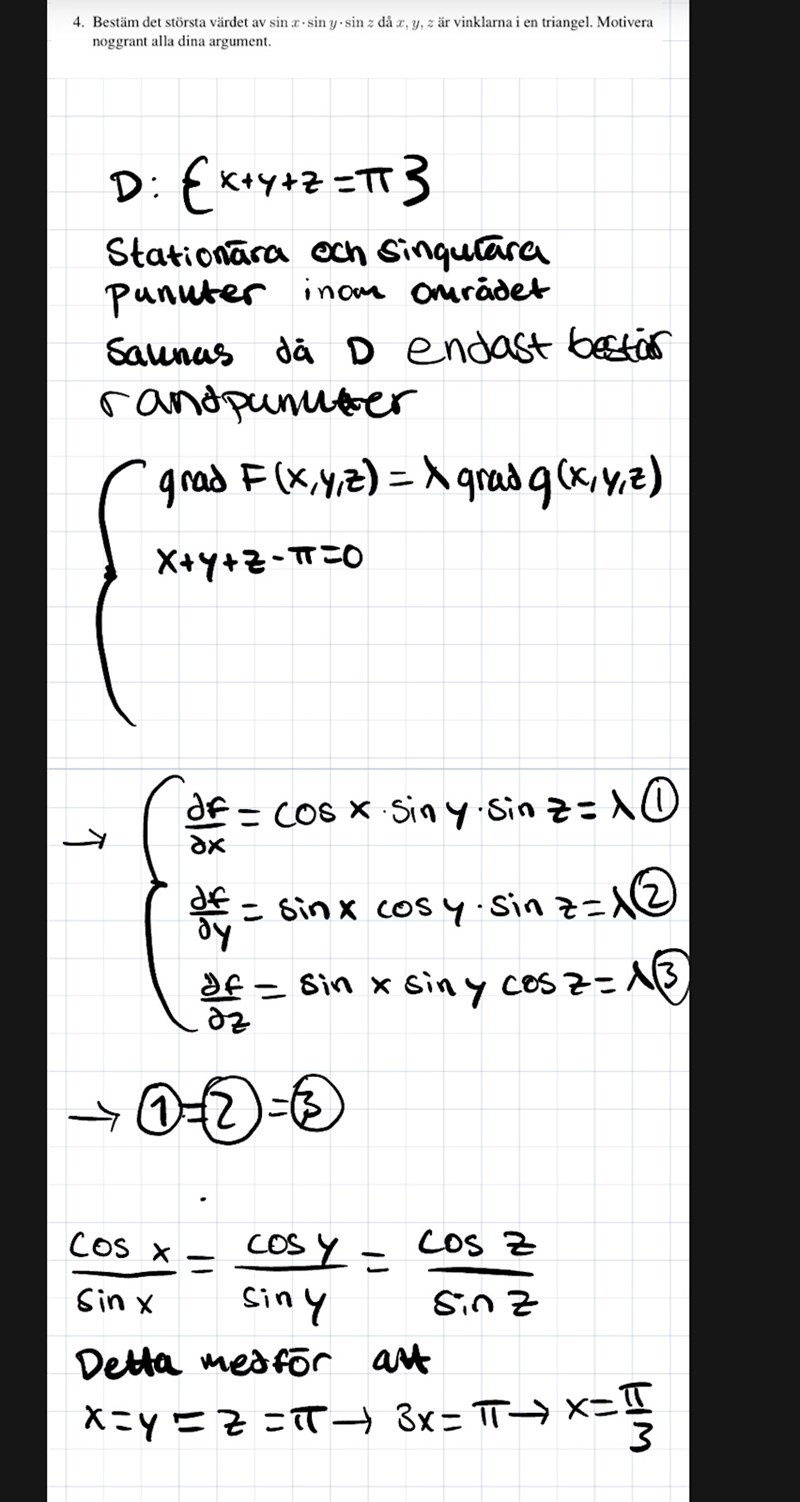 4. Bestäm det största värdet av sin x · sin y · sin z då x, y, z är vinklarna i en triangel. Motivera
noggrant alla dina argument.
D: {x+y+z=π}
Stationära och singulära
punkter inom området
saknas då D endast består
randpunkter
grad F(x,y,z) = λ grad g(x,y,z)
x+y+z-π=0
→ ∂f/∂x = cos x · sin y · sin z = λ ①
∂f/∂y = sin x cos y · sin z = λ ②
∂f/∂z = sin x sin y cos z = λ ③
→ ①=②=③
cos x/sin x = cos y/sin y = cos z/sin z
Detta medför att
x=y=z=π → 3x=π → x=π/3